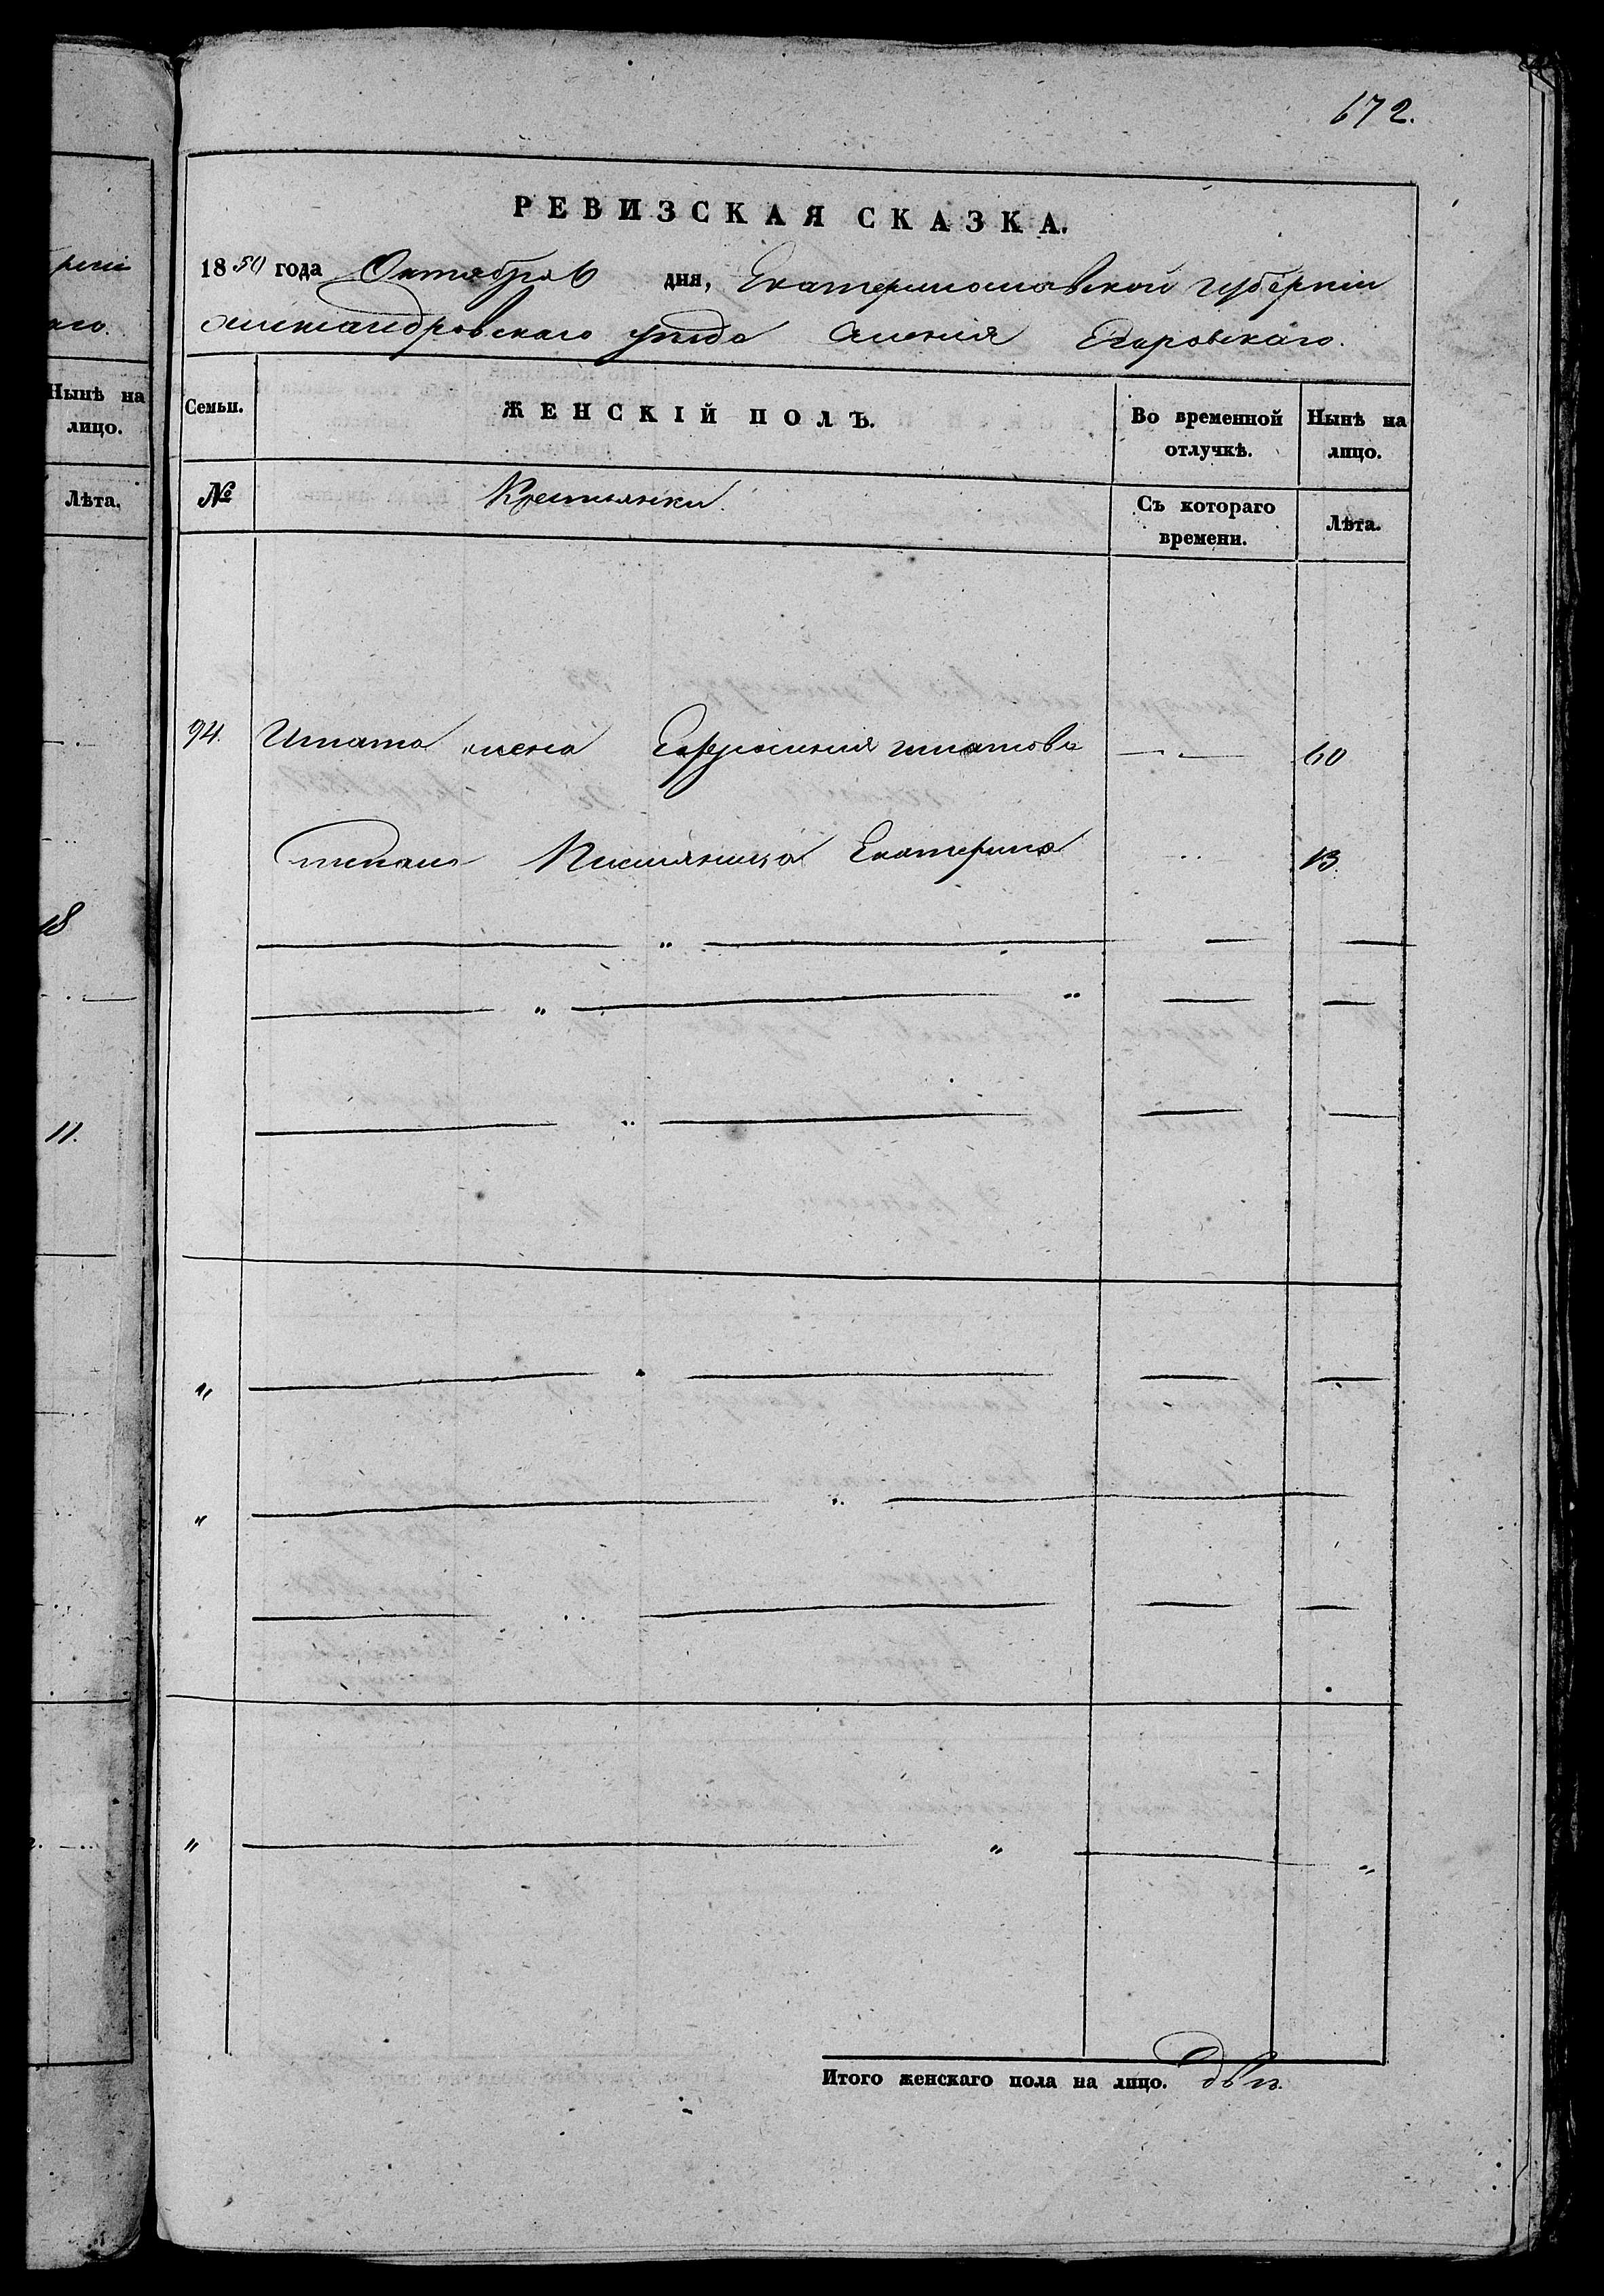 672.
РЕВИЗСКАЯ СКАЗКА.
1850 года Октября 6 дня, Екатеринославской губерніи
Александровскаго уезда имения Егоровскаго.
Семьи. ЖЕНСКІЙ ПОЛЪ. Во временной отлучкѣ. Нынѣ на лицо.
№ Крестьянки. Съ котораго времени. Лѣта.
94. Игната жена Ефросиния Игнатова 60
Екатерина 13.
Итого женскаго пола на лицо. Двѣ.
Нынѣ на
лицо.
Лѣта.
18
11.